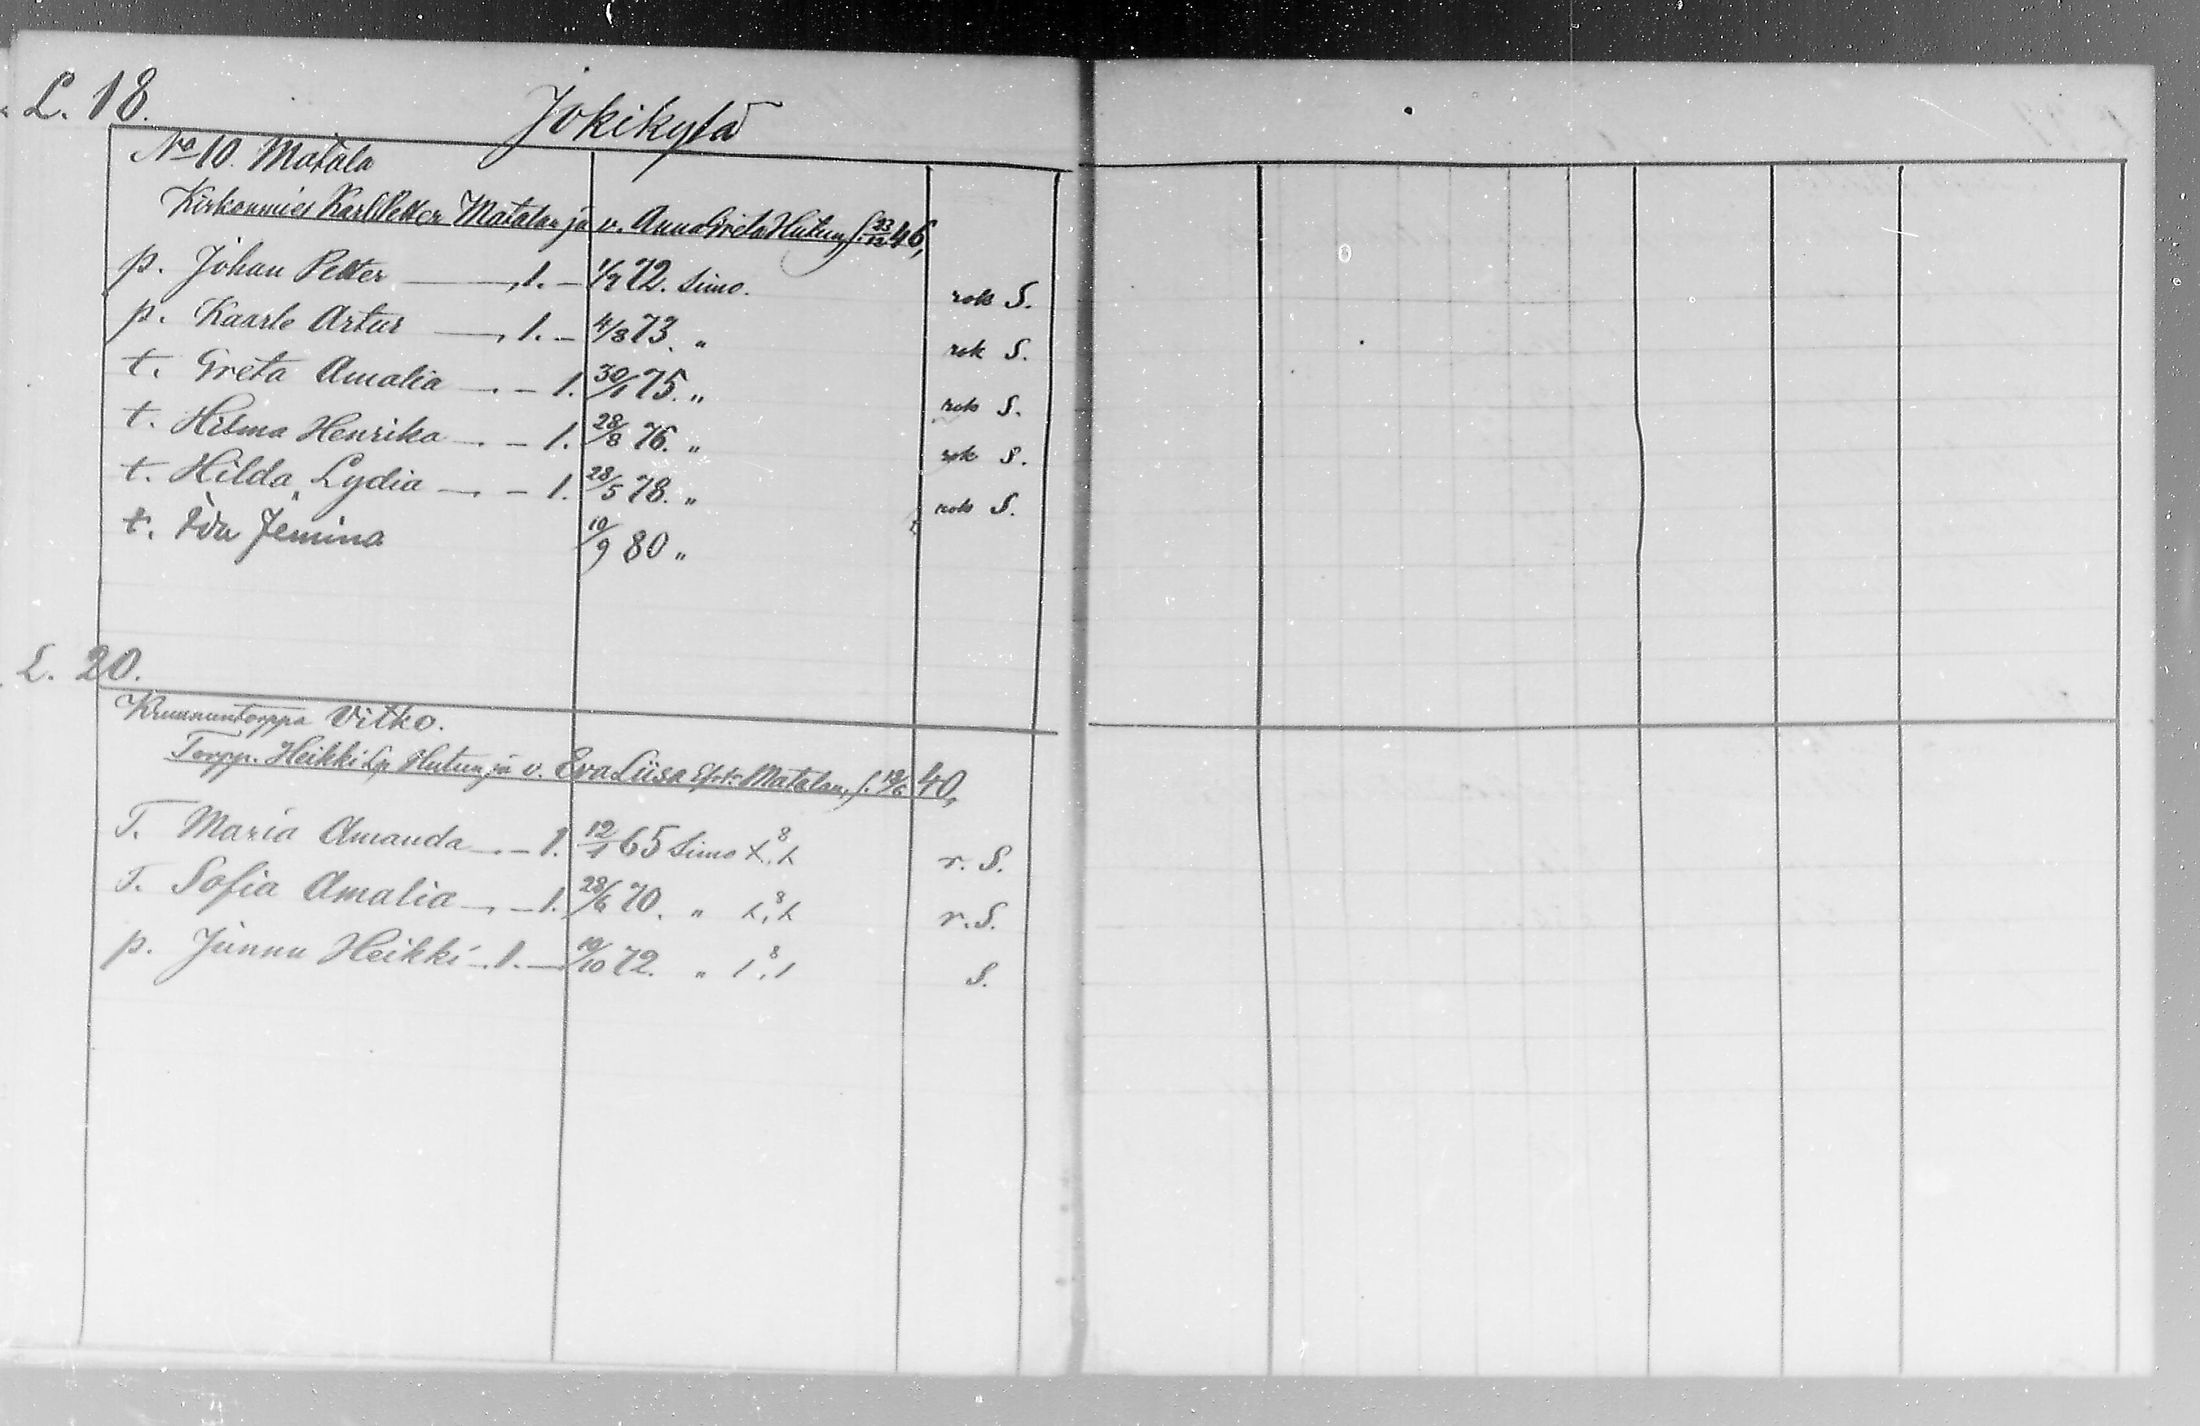 L. 18.
Jokikylä
No 10. Matala
Kirkonmies Karl Petter Matala ja v. Anna Greta Hutun, s. 23/12 46,
p. Johan Petter — 1. — 1/7 72. Simo. rok S.
p. Kaarle Artur — 1. — 4/8 73. " rok S.
t. Greta Amalia — 1. 30/1 75. " rok S.
t. Hilma Henrika — 1. 28/8 76. " rok S.
t. Hilda Lydia — 1. 28/5 78. " rok S.
t. Ida Jemina 10/9 80 "
L. 20.
Kruununtorppa Vitko.
Torpp. Heikki Hutun ja v. Eva Liisa Matalan, s. 40,
T. Maria Amanda — 1. 12/1 65 Simo r. S.
T. Sofia Amalia — 1. 28/6 70. " r. S.
p. Junnu Heikki — 1. — 10/10 72. " S.